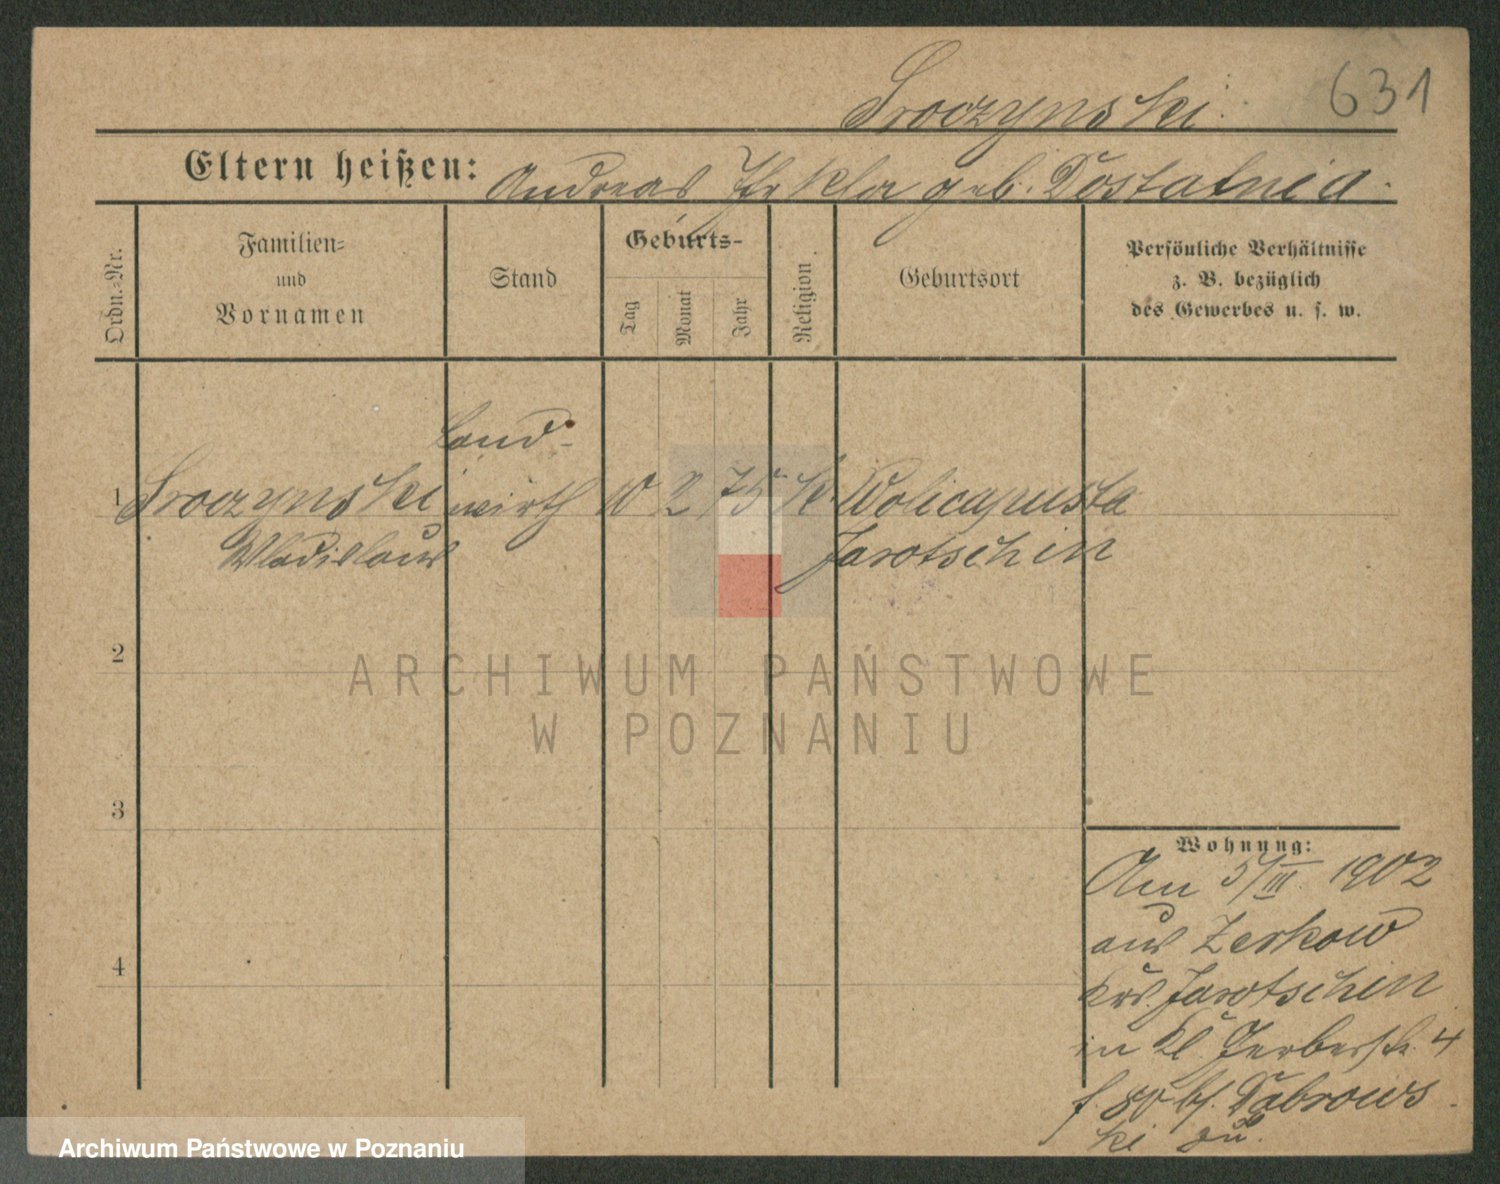 Sroczynski.
631
Eltern heißen: Andreas Thekla geb. Dostatnia.
Ordn.-Nr.
Familien-
und
Vornamen
Stand
Geburts-
Tag
Monat
Jahr
Religion
Geburtsort
Persönliche Verhältnisse
z. B. bezüglich
des Gewerbes u. s. w.
Land-
1 Sroczynski wirth 10 2 75 k. Wolicapusta
Wladislaus Jarotschin
2
3
4
ARCHIWUM PAŃSTWOWE
W POZNANIU
Wohnung:
Am 5/III. 1902
aus Zerkow
Krs. Jarotschin
in Kl. Gerberstr. 4
b/. Dabrows
ki zu.
Archiwum Państwowe w Poznaniu